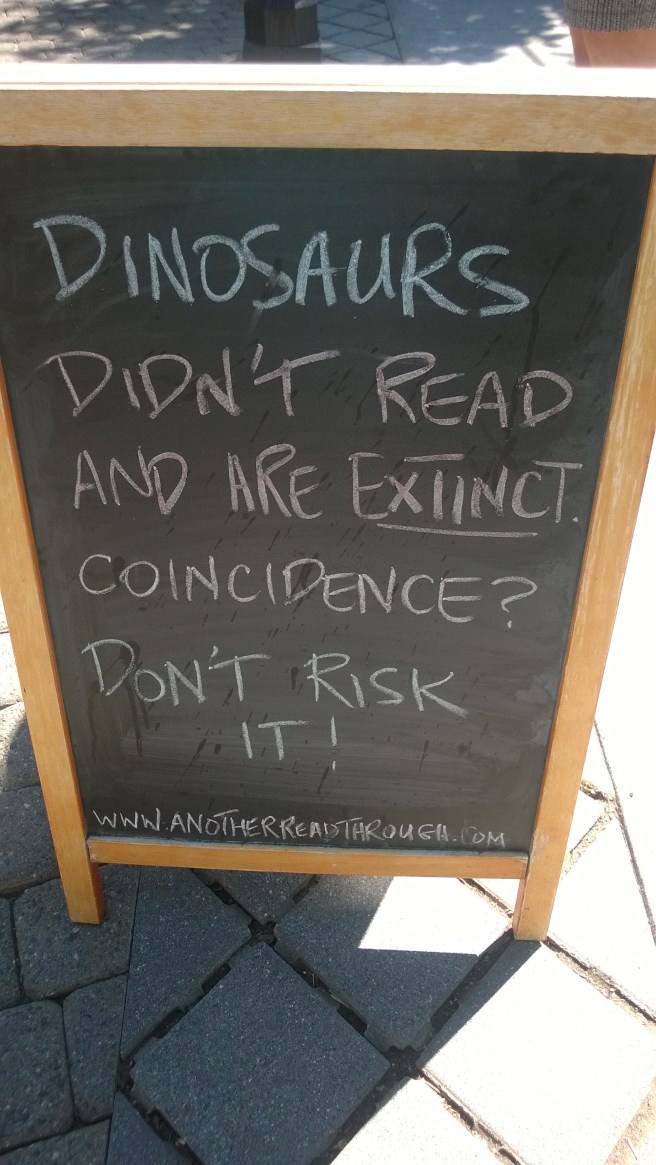 DINOSAURS
DIDN'T READ
AND ARE EXTINCT.
COINCIDENCE?
DON'T RISK
IT!
WWW.ANOTHERREADTHROUGH.COM